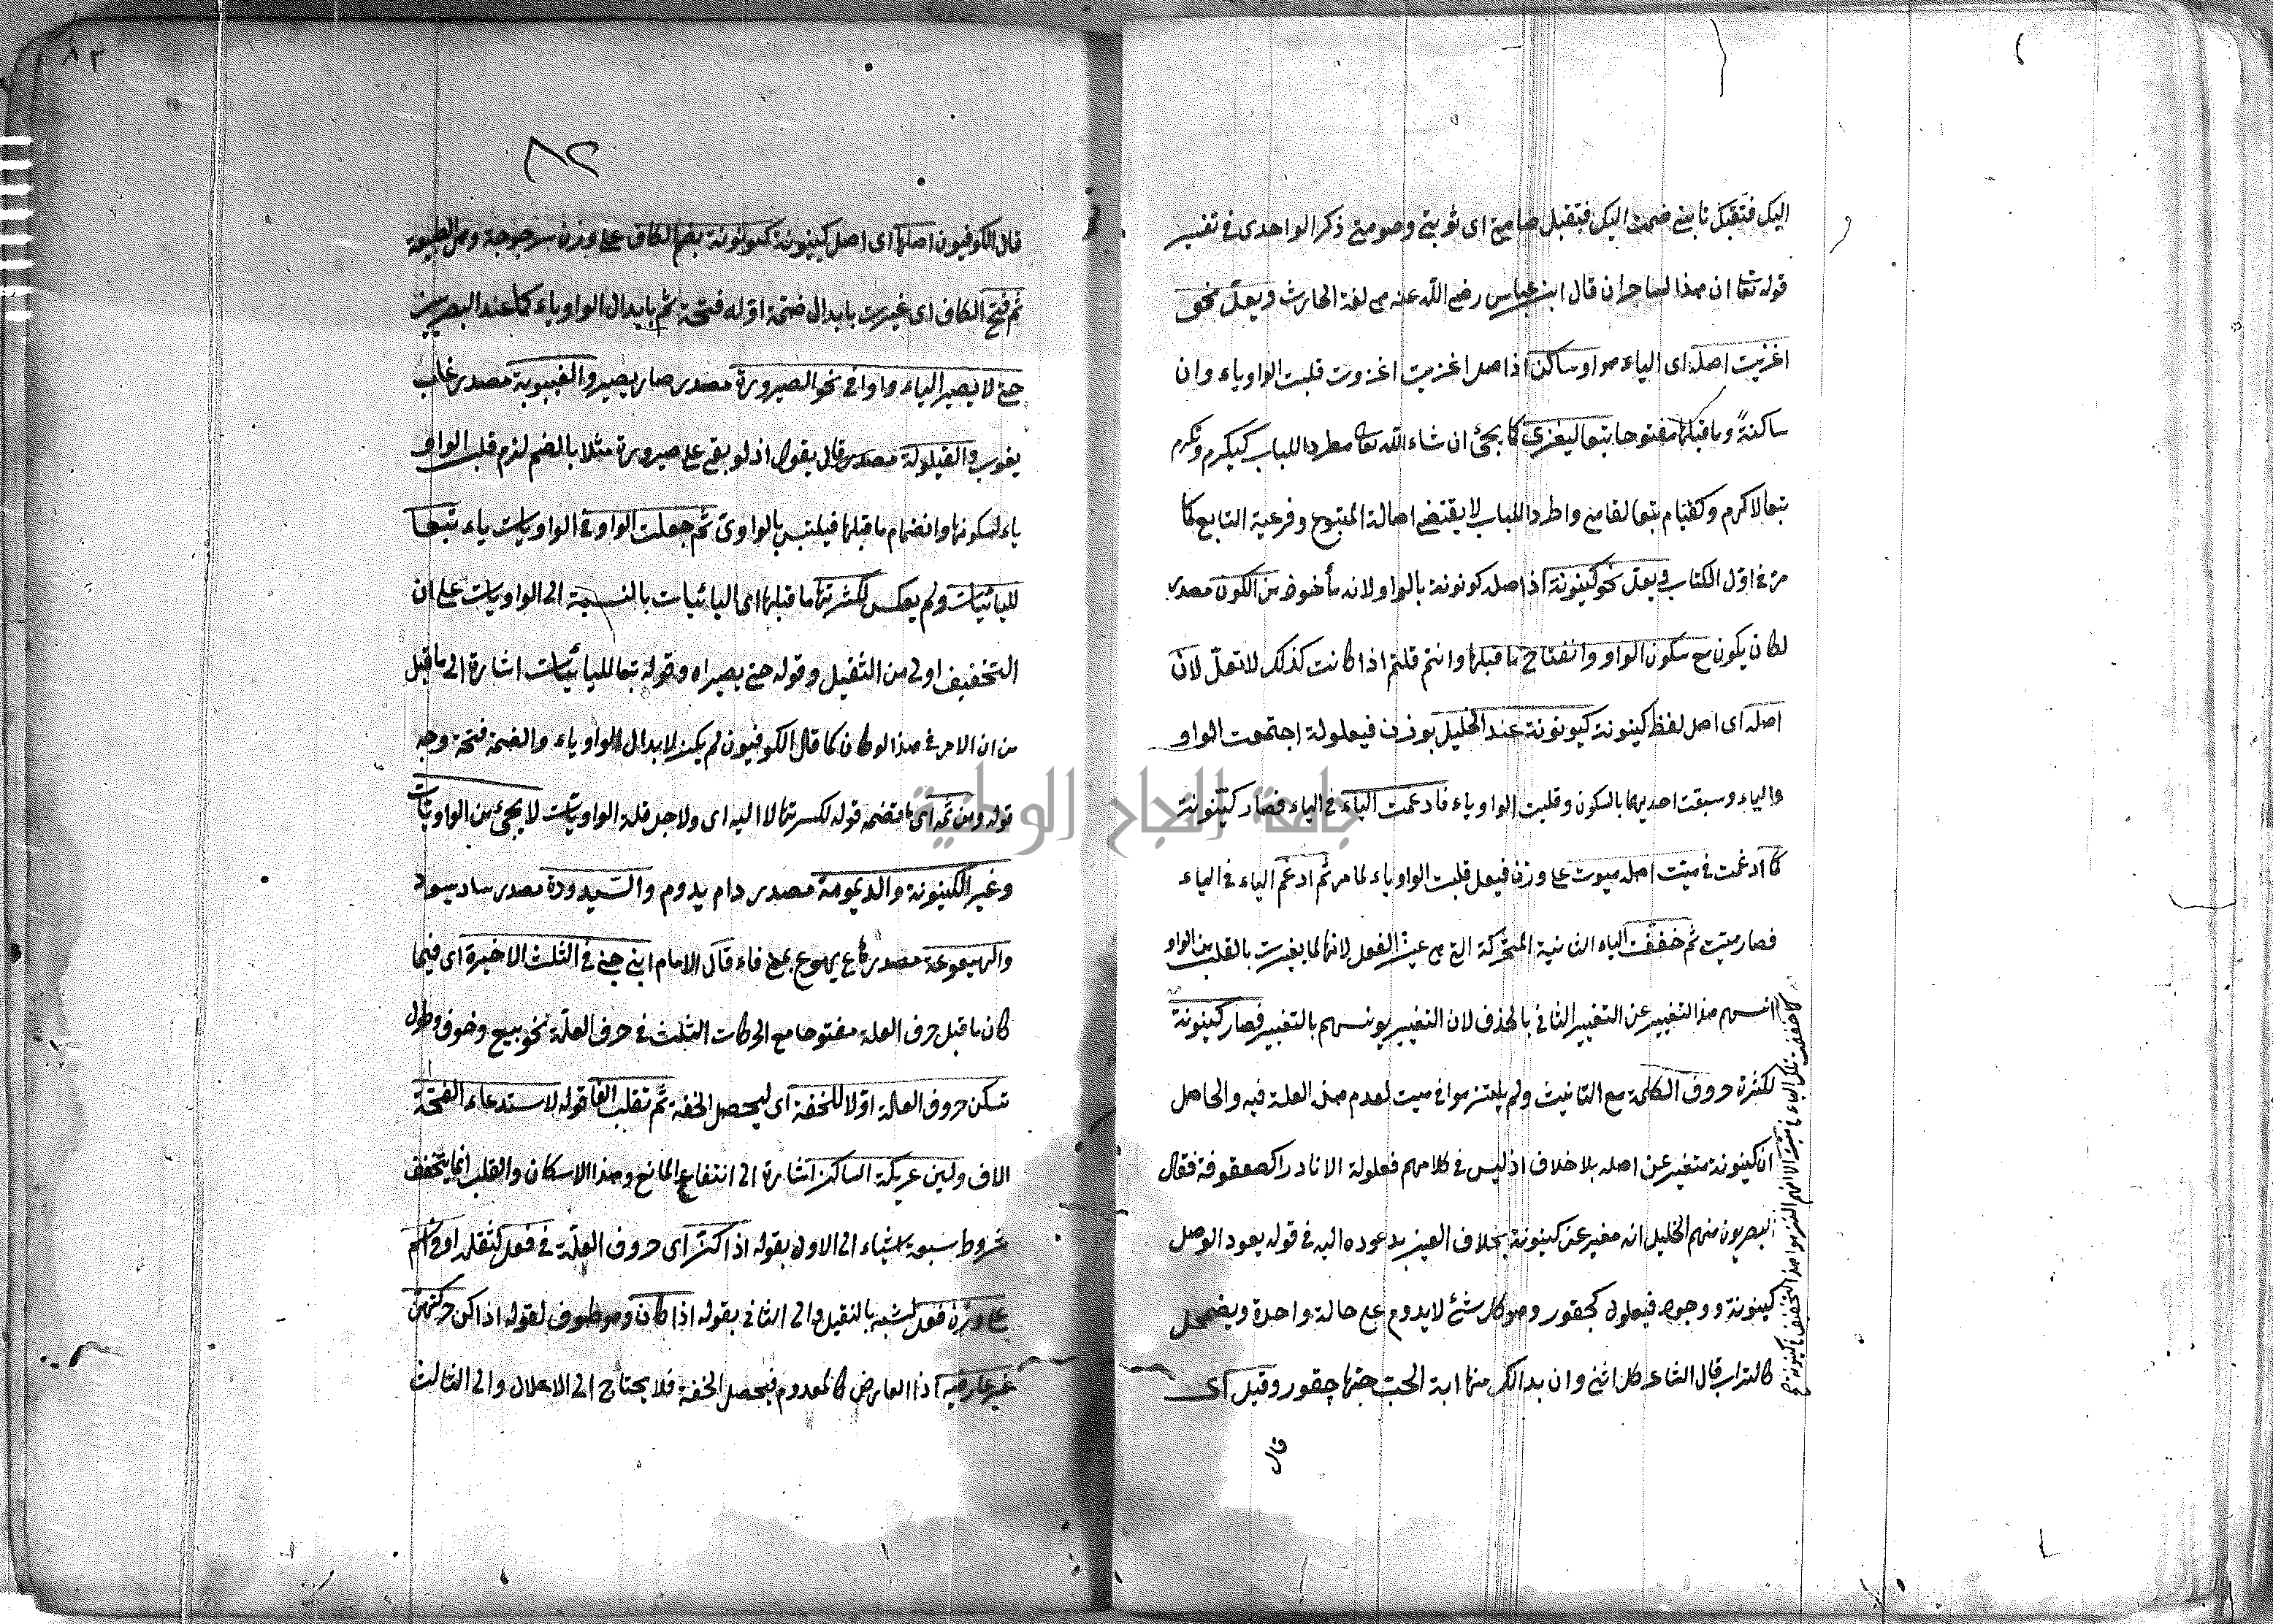 اليك فتقبل تابتي ضمت اليك فتقبل صامتي اى ثوبتي وصومتي ذكر الواحدى فى تفسير
قوله تعا ان هذا لساحران قال ابن عباس رضى الله عنه هى لغة الحارث ويعل نحو
اغزيت اصله اى الياء هو واو ساكن اذ اصل اغزيت اغزوت قلبت الواو ياء وان
ساكنة وما قبلها مفتوحا تبعا ليغزى كما يجئ ان شاء الله تعا مطردا للباب كيكرم وتكرم
تبعا لاكرم وكقيام تبعا لقام واطردا للباب لا يقتضى اصالة المتبوع وفرعية التابع كما
مر فى اول الكتاب ويعل نحو كينونة اذ اصله كونونة بالواو لانه مأخوذ من الكون مصدر
لكان يكون مع سكون الواو وانفتاح ما قبلها وانتم قلتم اذا كانت كذلك لا تعل لان
اصله اى اصل لفظ كينونة كيونونة عند الخليل بوزن فيعلولة اجتمعت الواو
والياء وسبقت احديهما بالسكون وقلبت الواو ياء فادغمت الياء فى الياء فصار كينونة
كما ادغمت فى ميت اصله ميوت على وزن فيعل قلبت الواو ياء لما مر ثم ادغم الياء فى الياء
فصار ميت ثم خففت الياء الثانية المتحركة التى هى عين الفعل لانها لما يغيرت بالقلب من الواو
انسهم هذا التغيير عن التغيير الثانى بالحذف لان التغيير يونسهم بالتغيير فصار كينونة
لكثرة حروف الكلمة مع التانيث ولم يلتزموا فى ميت لعدم هذه العلة فيه والحاصل
ان كينونة متغير عن اصله بلا خلاف اذ ليس فى كلامهم فعلولة الا نادرا كصعقوفة فقال
البصريون منهم الخليل انه مغير عن كينونة بخلاف العين بدعوده اليه فى قوله يعود الوصل
كينونة ووجود فيعلول كجقور وهو كل شئ لا يدوم على حالة واحدة ويضمحل
كالتراب قال الشاعر كل انثى وان بدا لك منها اية الحب حبها جقور وقيل اى
قال
كما خففت تلك الياء فى ميت الا انهم التزموا هذا التخفيف فى كينونة
٨٢
قال الكوفيون اصلها اى اصل كينونة كونونة بضم الكاف على وزن سرجوجة وهى الطبيعة
ثم فتح الكاف اى غيرت بابدال ضمة اوله فتحة ثم بابدال الواو ياء كما عند البصريين
حتى لا يصير الياء واوا فى نحو الصيرورة مصدر صار يصير والغيبوبة مصدر غاب
يغوب والقيلولة مصدر قال يقول اذ لو بقى على صيرورة مثلا بالضم لزم قلب الواو
ياء لسكونها وانضمام ما قبلها فيلتبس بالواوى ثم جعلت الواو فى الواويات ياء تبعا
لليائيات ولم يعكس لكثرتها ما قبلها اى اليائيات بالنسبة الى الواويات على ان
التخفيف اولى من الثقيل وقوله حتى يصير اه وقوله تبعا لليائيات اشارة الى ما قيل
من ان الامر فى هذا لو كان كما قال الكوفيون لم يكن لابدال الواو ياء والضمة فتحة وجه
قوله ومن ثمه اى ما تضمه قوله لكثرتها لا اليه اى ولاجل قلة الواويات لا يجئ من الواويات
وغير الكينونة والديمومة مصدر دام يدوم والسيدودة مصدر ساد يسود
والهيعوعة مصدر هاع يهوع بمعنى قاء قال الامام ابن جنى فى الثلث الاخيرة اى فيما
كان ما قبل حرف العلة مفتوحا مع الحركات الثلث فى حرف العلة نحو بيع وخوف وطول
تسكن حروف العلة اولا للخفة اى ليحصل الخفة ثم تقلب الفا قوله لاستدعاء الفتحة
الالف ولين عريكة الساكن اشارة الى انتفاع المانع وهذا الاسكان والقلب انما يتحقق
شروط سبعة اشياء الى الاول بقوله اذا كثر اى حروف العلة فى فعل كثقله او فى اسم
على وزن فعل لشبه بالثقيل والى الثانى بقوله اذا كان وهو ظرف لقوله اذا كن حركتهن
غير عارضية اذا العارض كالمعدوم فيحصل الخفة فلا يحتاج الى الاعلال والى الثالث
جامعة النجاح الوطنية